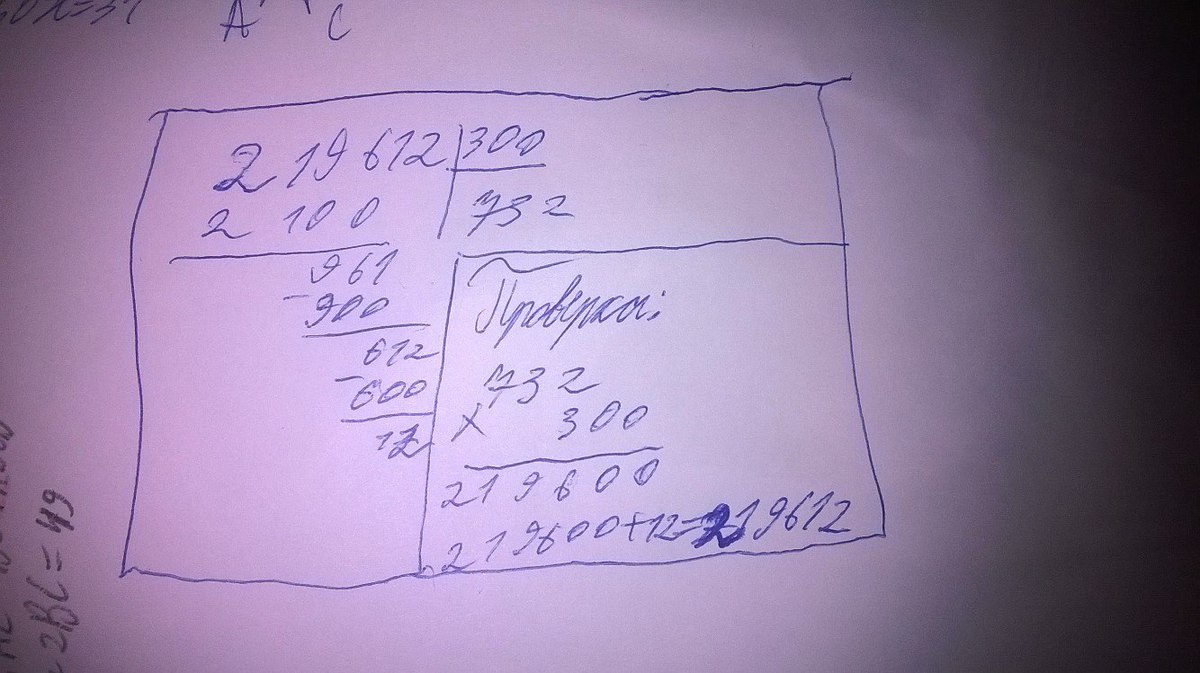 A C
219612 300
2100 732
961
- 900
612
- 600
12
Проверка:
732
× 300
219600
219600+12=219612
2BC = 49